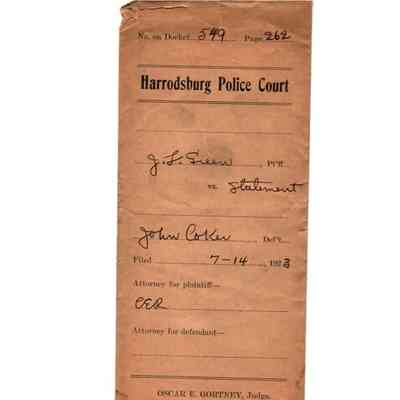 No. on Docket 549 Page 262
Harrodsburg Police Court
J. L. Green, Pl'ff
vs. Statement
John Coker, Def't.
Filed 7-14, 1923
Attorney for plaintiff—
CER
Attorney for defendant—
OSCAR E. GORTNEY, Judge.